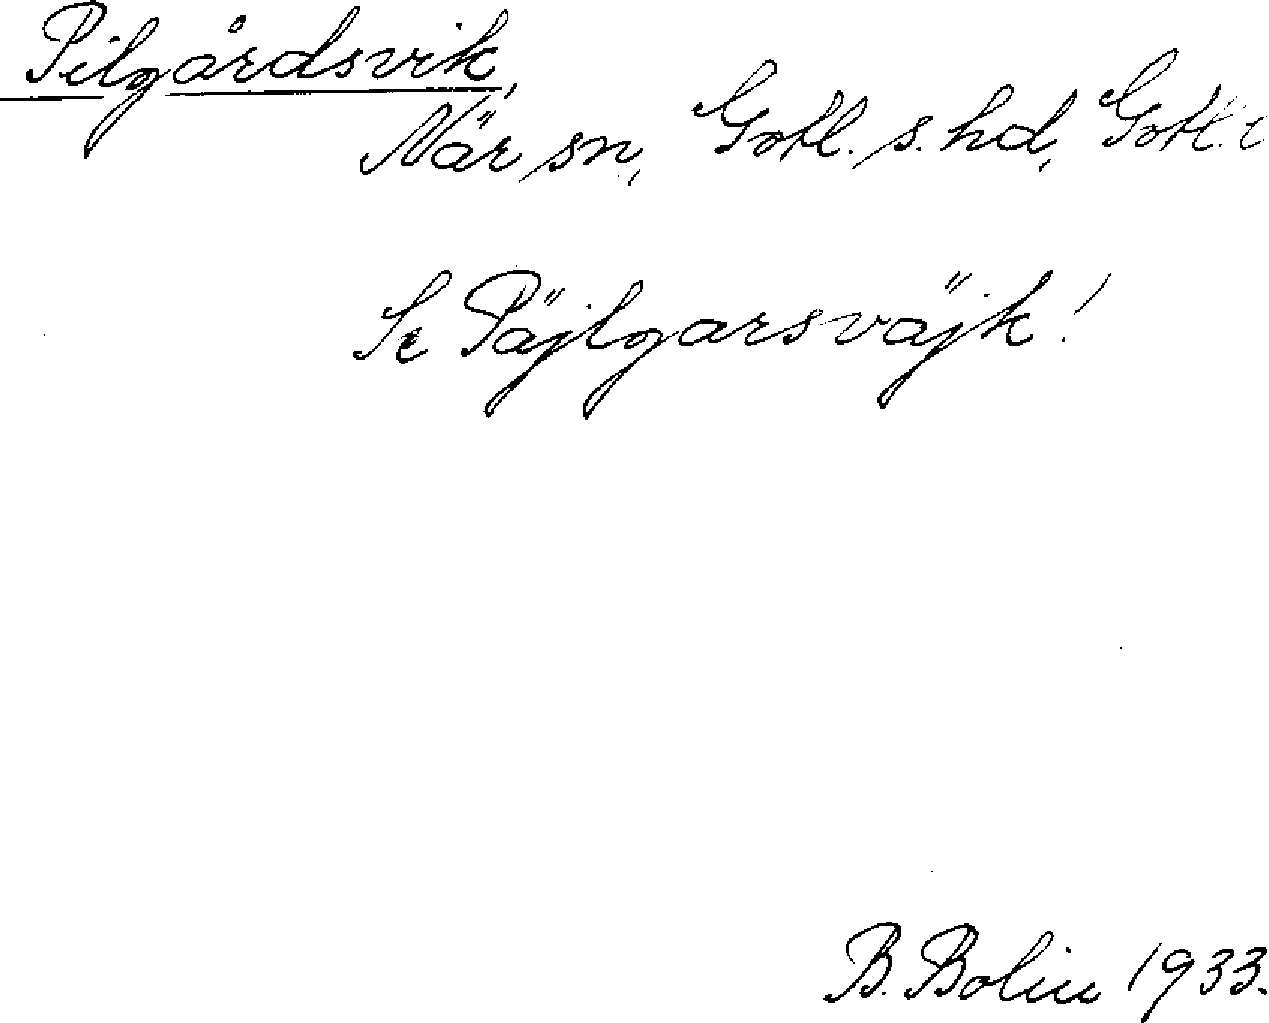 Pilgårdsvik,
När sn, Gotl. s. hd, Gotl. l
Se Päjlgarsväjk!
B. Bolin 1933.